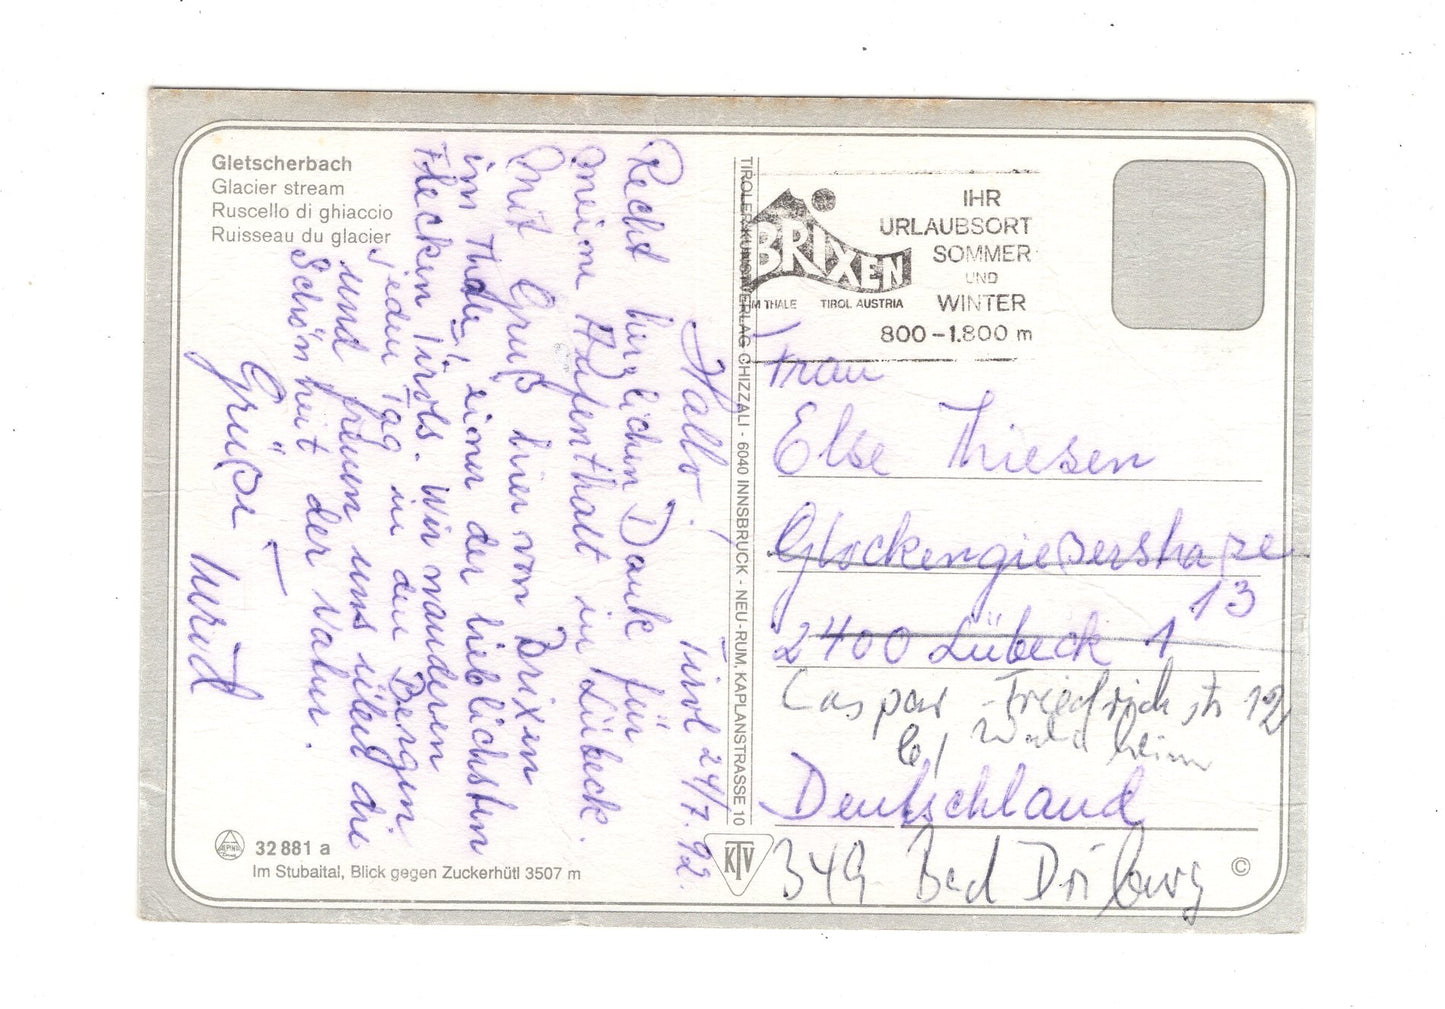 Gletscherbach
Glacier stream
Ruscello di ghiaccio
Ruisseau du glacier
Hallo! Tirol 24/7.92.
Recht herzlichen Dank für
meinen Aufenthalt in Lübeck.
Mit Gruß hier von Brixen
im Thale, einer der lieblichsten
Flecken Tirols. Wir wandern
jeden Tag in den Bergen
und freuen uns über die
Schönheit der Natur.
Grüße
32 881 a
Im Stubaital, Blick gegen Zuckerhütl 3507 m
TIROLER KUNSTVERLAG CHIZZALI - 6040 INNSBRUCK - NEU-RUM, KAPLANSTRASSE 10
KTV
BRIXEN
IM THALE TIROL AUSTRIA
IHR
URLAUBSORT
SOMMER
UND
WINTER
800-1.800 m
Frau
Else Thiesen
Glockengießerstraße
13
2400 Lübeck 1
Caspar-Friedrichstr 12
b/ Waldheim
Deutschland
349 Bad Driburg
©